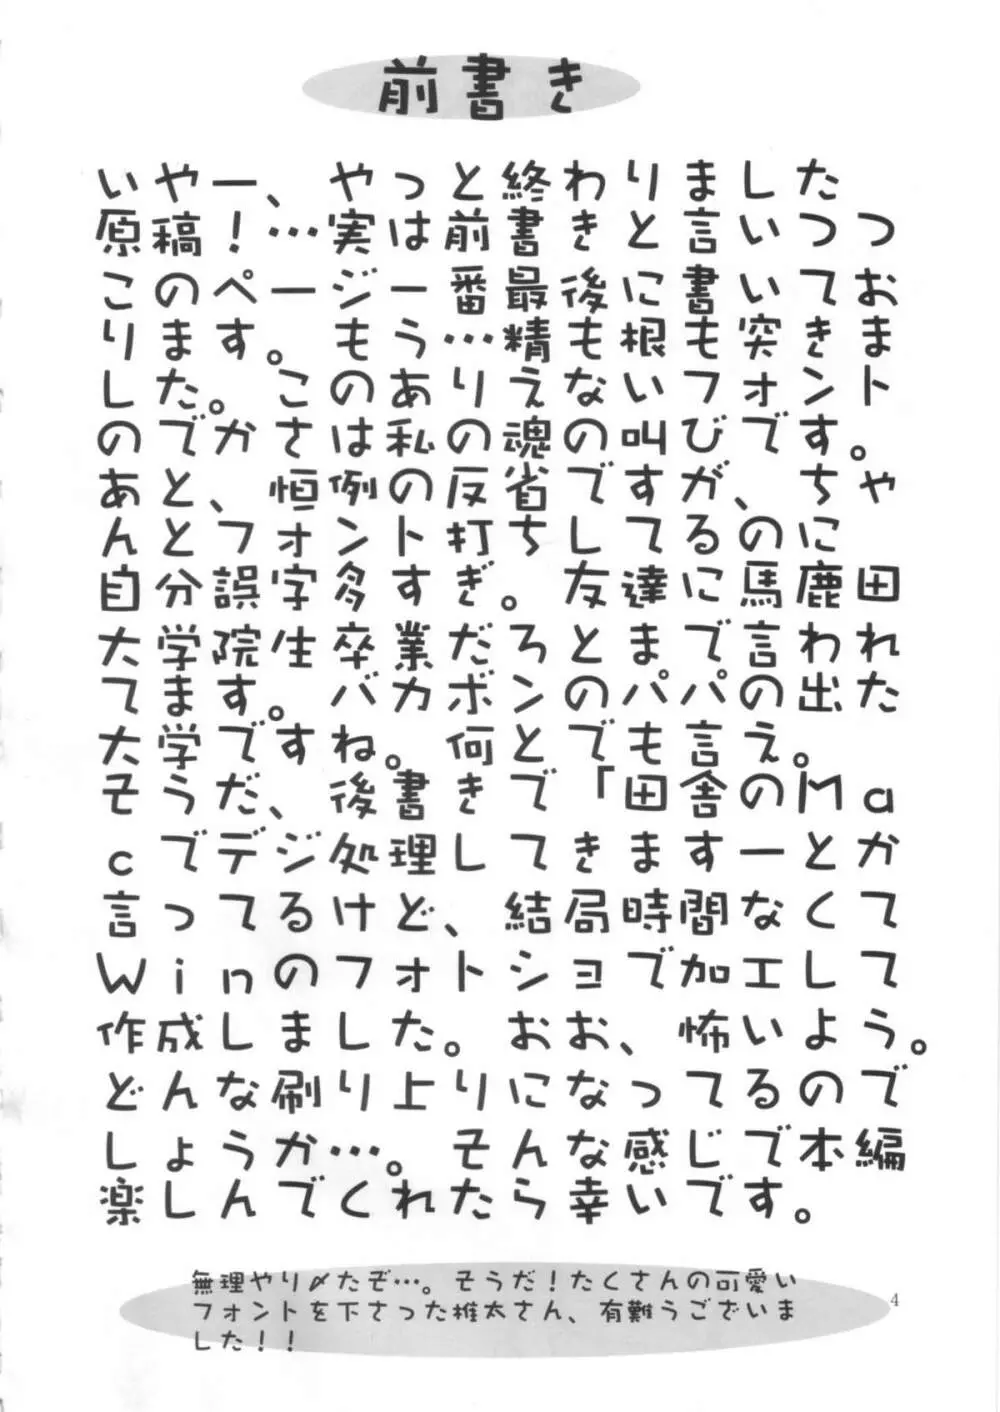 前書き
いやー、やっと終わりました
原稿！…実は前書きと言いつつ
このページー番最後に書いてお
ります。もう…精も根も突きま
した。このありえないフォント
のでかさは私の魂の叫びです。
あと、恒例の反省ですが、ちゃ
んとフォント打ちしてるのに
自分誤字多すぎ。友達に馬鹿田
大学院生卒業だろとまで言われ
てます。バカボンのパパの出た
大学ですね。何とでも言え。
そうだ、後書きで「田舎のMa
cでデジ処理してきますーとか
言ってるけど、結局時間なくて
Winのフォトショで加工して
作成しました。おお、怖いよう。
どんな刷り上りになってるので
しょうか…。そんな感じで本編
楽しんでくれたら幸いです。
無理やり〆たぞ…。そうだ！たくさんの可愛い
フォントを下さった椎太さん、有難うございま
した！！
4